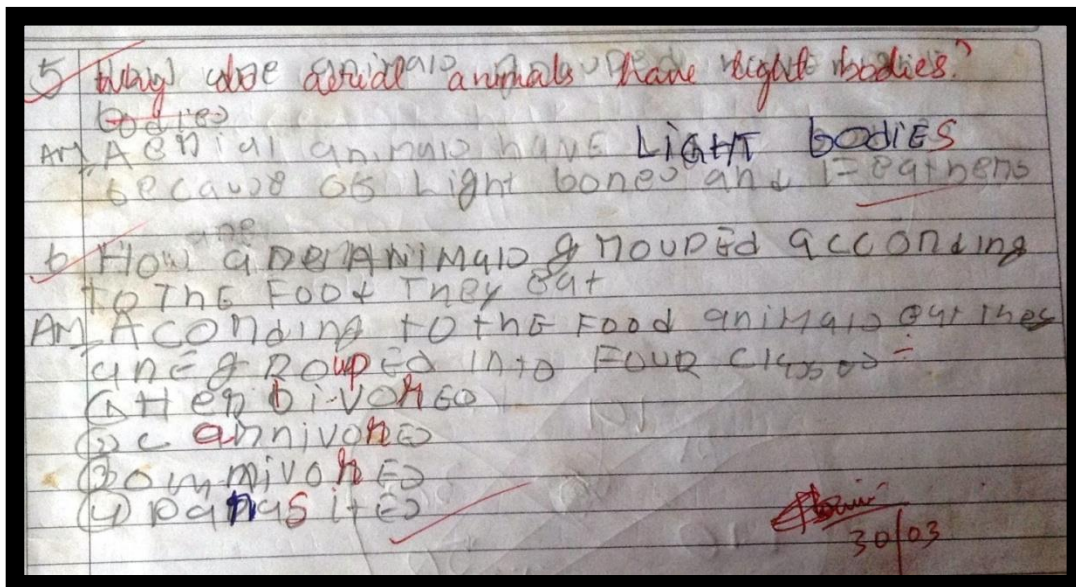 5 Why doe aerial animals have light bodies?
bodies
Ans Aerial animals have LiGHT bodiES
because of Light bones and Feathers
6 How are ANiMals grouped according
To The Food They eat
Ans Acording to the Food animals eat they
are gRouped into Four Classes :-
(1) Herbivores
(2) carnivores
(3) ommivores
(4) parasites
30/03